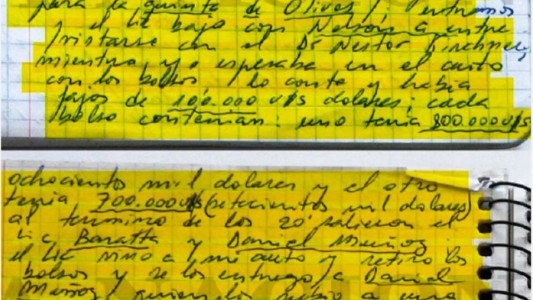 para la quinta de Olivos / entramos
y el Lic bajo con Nelson a entre
vistarse con el Dr Nestor Kirchner,
mientras yo esperaba en el auto
con los bolsos / lo conte y habia
fajos de 100.000 u$s dolares; cada
bolso contenian: uno tenia 800.000u$s
ochocientos mil dolares y el otro
tenia 700.000u$s (setecientos mil dolares)
al termino de los 20' salieron el
Lic Baratta y Daniel Muñoz
el Lic vino a mi auto y retiro los
bolsos y se los entrego a Daniel
Muñoz quien los subio a